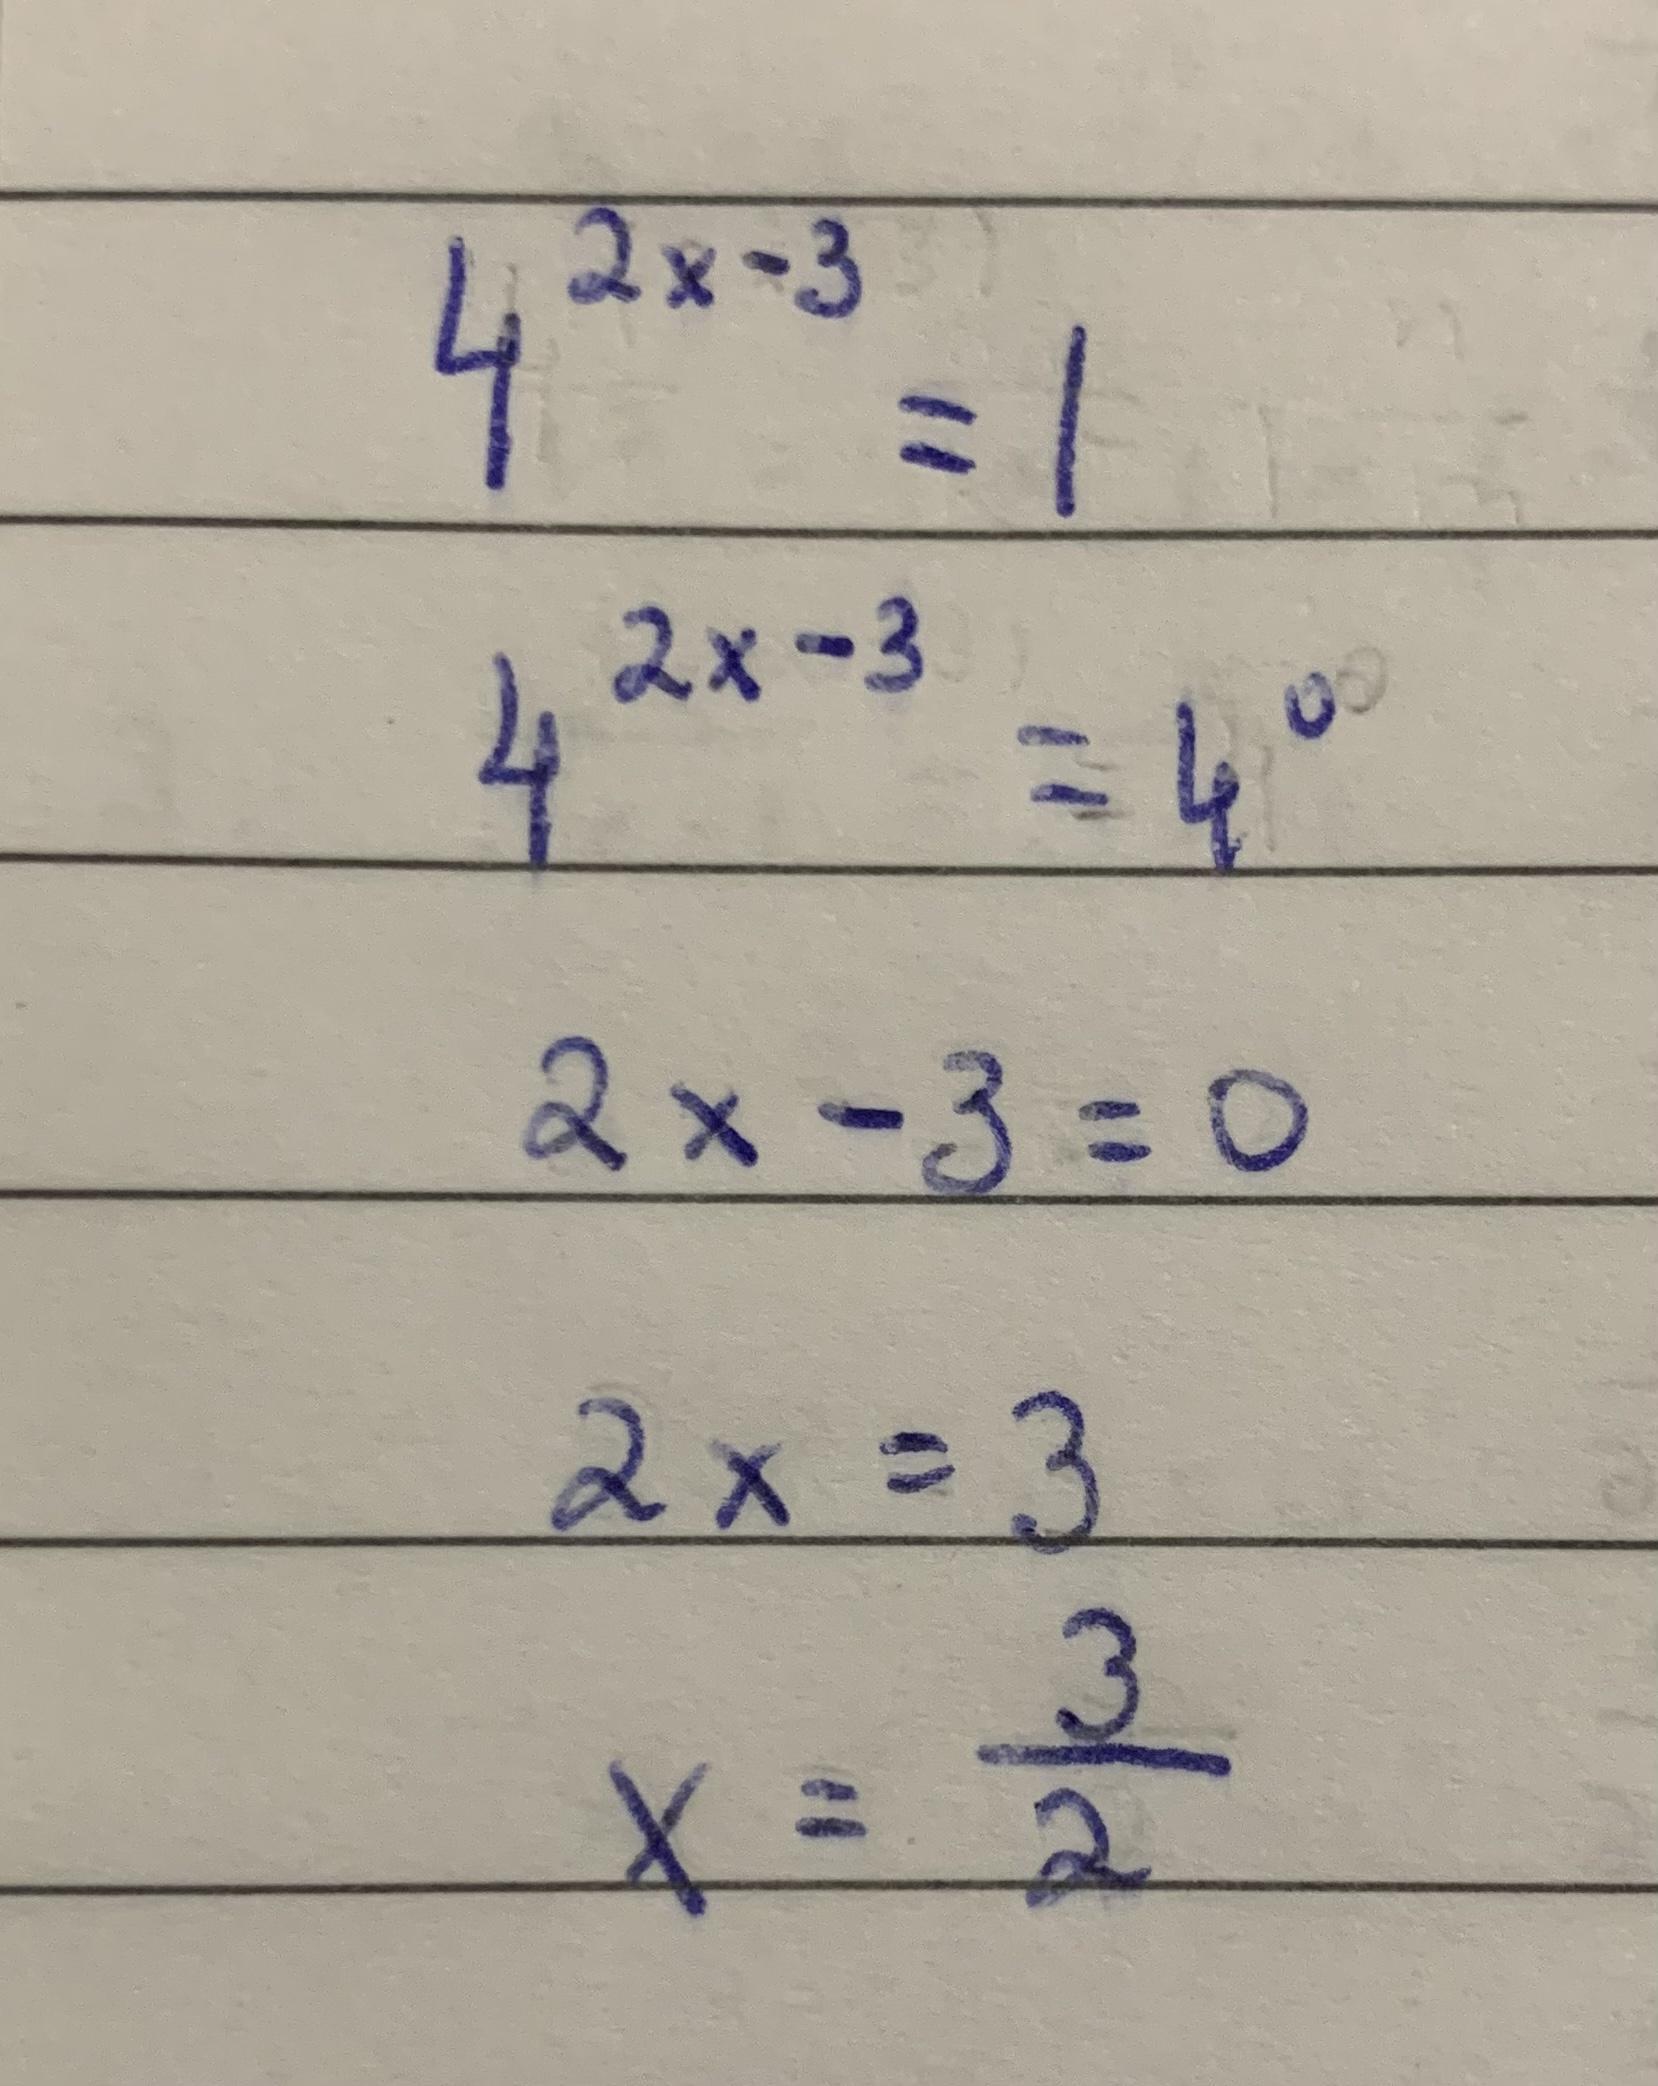 4^{2x-3} = 1
4^{2x-3} = 4^0
2x - 3 = 0
2x = 3
x = \frac{3}{2}